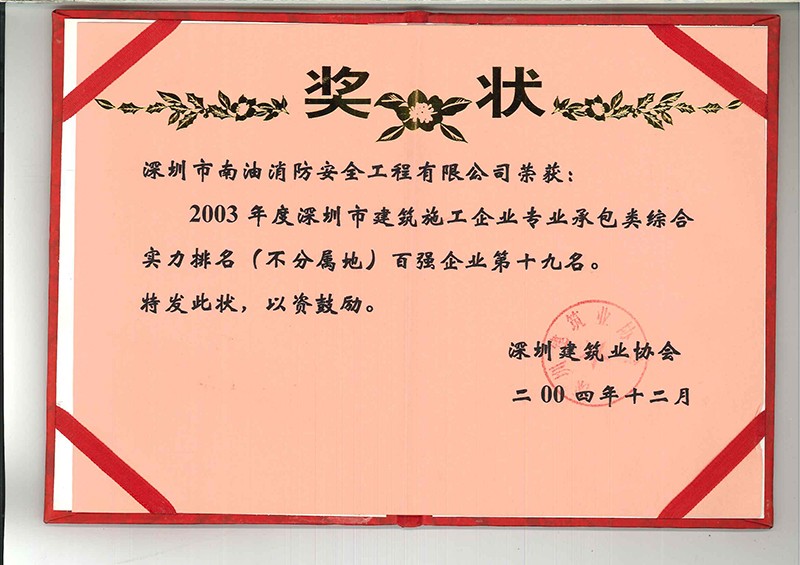 奖 状
深圳市南油消防安全工程有限公司荣获：
2003 年度深圳市建筑施工企业专业承包类综合
实力排名（不分属地）百强企业第十九名。
特发此状，以资鼓励。
深圳建筑业协会
二00四年十二月